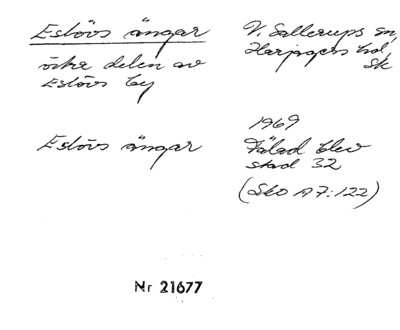 Eslövs ängar
östra delen av
Eslövs by
V. Sallerups sn,
Harjagers hd,
Sk
Eslövs ängar
1969
Fälad blev
stad 32
(Sko A7:122)
Nr 21677